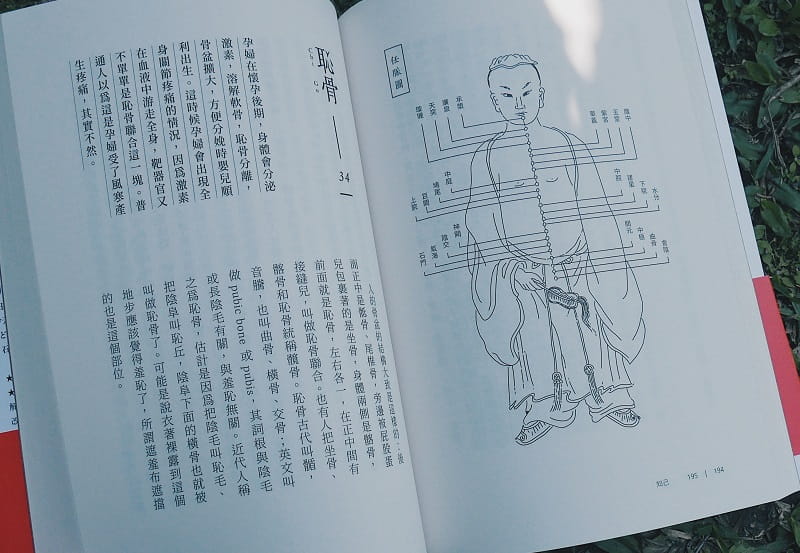 任脈圖
承漿
廉泉
天突
璇璣
膻中
玉堂
紫宮
華蓋
中庭
鳩尾
巨闕
上脘
水分
下脘
建里
中脘
神闕
陰交
氣海
石門
會陰
曲骨
中極
關元
知己 195 | 194
恥骨 — 34 —
Chi Gu
孕婦在懷孕後期，身體會分泌
激素，溶解軟骨，恥骨分離，
骨盆擴大，方便分娩時嬰兒順
利出生。這時候孕婦會出現全
身關節疼痛的情況，因爲激素
在血液中游走全身，靶器官又
不單單是恥骨聯合這一塊。普
通人以爲這是孕婦受了風寒產
生疼痛，其實不然。
人的骨盆的結構大致是這樣的：後
面正中是骶骨、尾椎骨，旁邊被屁股蛋
兒包裹著的是坐骨，身體兩側是髂骨，
前面就是恥骨，左右各一，在正中間有
接縫兒，叫做恥骨聯合。也有人把坐骨、
髂骨和恥骨統稱髖骨。恥骨古代叫
音，也叫曲骨、橫骨、交骨；英文叫
做 pubic bone 或 pubis，其詞根與陰毛
或長陰毛有關，與羞恥無關。近代人稱
之爲恥骨，估計是因爲把陰毛叫恥毛、
把陰阜叫恥丘，陰阜下面的橫骨也就被
叫做恥骨了。可能是說衣著裸露到這個
地步應該覺得羞恥了，所謂遮羞布遮擋
的也是這個部位。